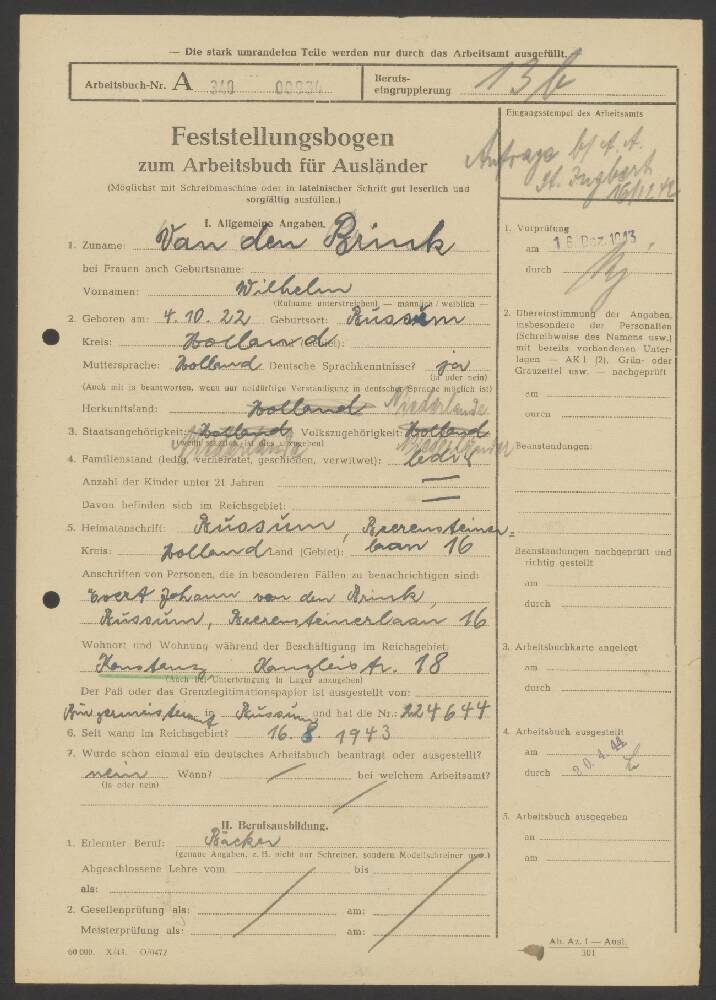 — Die stark umrandeten Teile werden nur durch das Arbeitsamt ausgefüllt.
Arbeitsbuch-Nr. A 349 00934
Berufs-
eingruppierung 13b
Eingangsstempel des Arbeitsamts
Antrags b/ A. A.
St. Ingbert
16/12.43
Feststellungsbogen
zum Arbeitsbuch für Ausländer
(Möglichst mit Schreibmaschine oder in lateinischer Schrift gut leserlich und
sorgfältig ausfüllen.)
I. Allgemeine Angaben.
1. Zuname: Van den Brink
bei Frauen auch Geburtsname:
Vornamen: Wilhelm
(Rufname unterstreichen) — männlich / weiblich —
2. Geboren am: 4. 10. 22 Geburtsort: Büssüm
Kreis: Holland (Gebiet):
Muttersprache: Holland Deutsche Sprachkenntnisse? ja
(ja oder nein)
(Auch mit ja beantworten, wenn nur notdürftige Verständigung in deutscher Sprache möglich ist)
Herkunftsland: Holland Niederlande
3. Staatsangehörigkeit: Holland Volkszugehörigkeit: Holland
Niederlande Niederländer
4. Familienstand (ledig, verheiratet, geschieden, verwitwet): ledig
Anzahl der Kinder unter 21 Jahren —
Davon befinden sich im Reichsgebiet: —
5. Heimatanschrift: Büssüm, Beerensteiner-
Kreis: Holland Land (Gebiet): laan 16
Anschriften von Personen, die in besonderen Fällen zu benachrichtigen sind:
Evert Johann van den Brink,
Büssüm, Beerensteinerlaan 16
Wohnort und Wohnung während der Beschäftigung im Reichsgebiet:
Konstanz, Kanzleistr. 18
(Auch bei Unterbringung in Lager anzugeben)
Der Paß oder das Grenzlegitimationspapier ist ausgestellt von:
Bürgermeisteramt in Büssüm und hat die Nr.: 224644
6. Seit wann im Reichsgebiet? 16. 8. 1943
7. Wurde schon einmal ein deutsches Arbeitsbuch beantragt oder ausgestellt?
nein Wann? / bei welchem Arbeitsamt?
(ja oder nein)
II. Berufsausbildung.
1. Erlernter Beruf: Bäcker
(genaue Angaben, z. B. nicht nur Schreiner, sondern Modellschreiner usw.)
Abgeschlossene Lehre vom bis
als:
2. Gesellenprüfung als: am:
Meisterprüfung als: am:
60 000. X/43. O/0472
1. Vorprüfung
am 16. Dez. 1943
durch
2. Übereinstimmung der Angaben,
insbesondere der Personalien
(Schreibweise des Namens usw.)
mit bereits vorhandenen Unter-
lagen — AK 1 (2), Grün- oder
Grauzettel usw. — nachgeprüft
am
durch
Beanstandungen:
Beanstandungen nachgeprüft und
richtig gestellt
am
durch
3. Arbeitsbuchkarte angelegt
am
durch
4. Arbeitsbuch ausgestellt
am 20. 4. 44
durch
5. Arbeitsbuch ausgegeben
an
am
Ab. Az. 1 — Ausl.
301